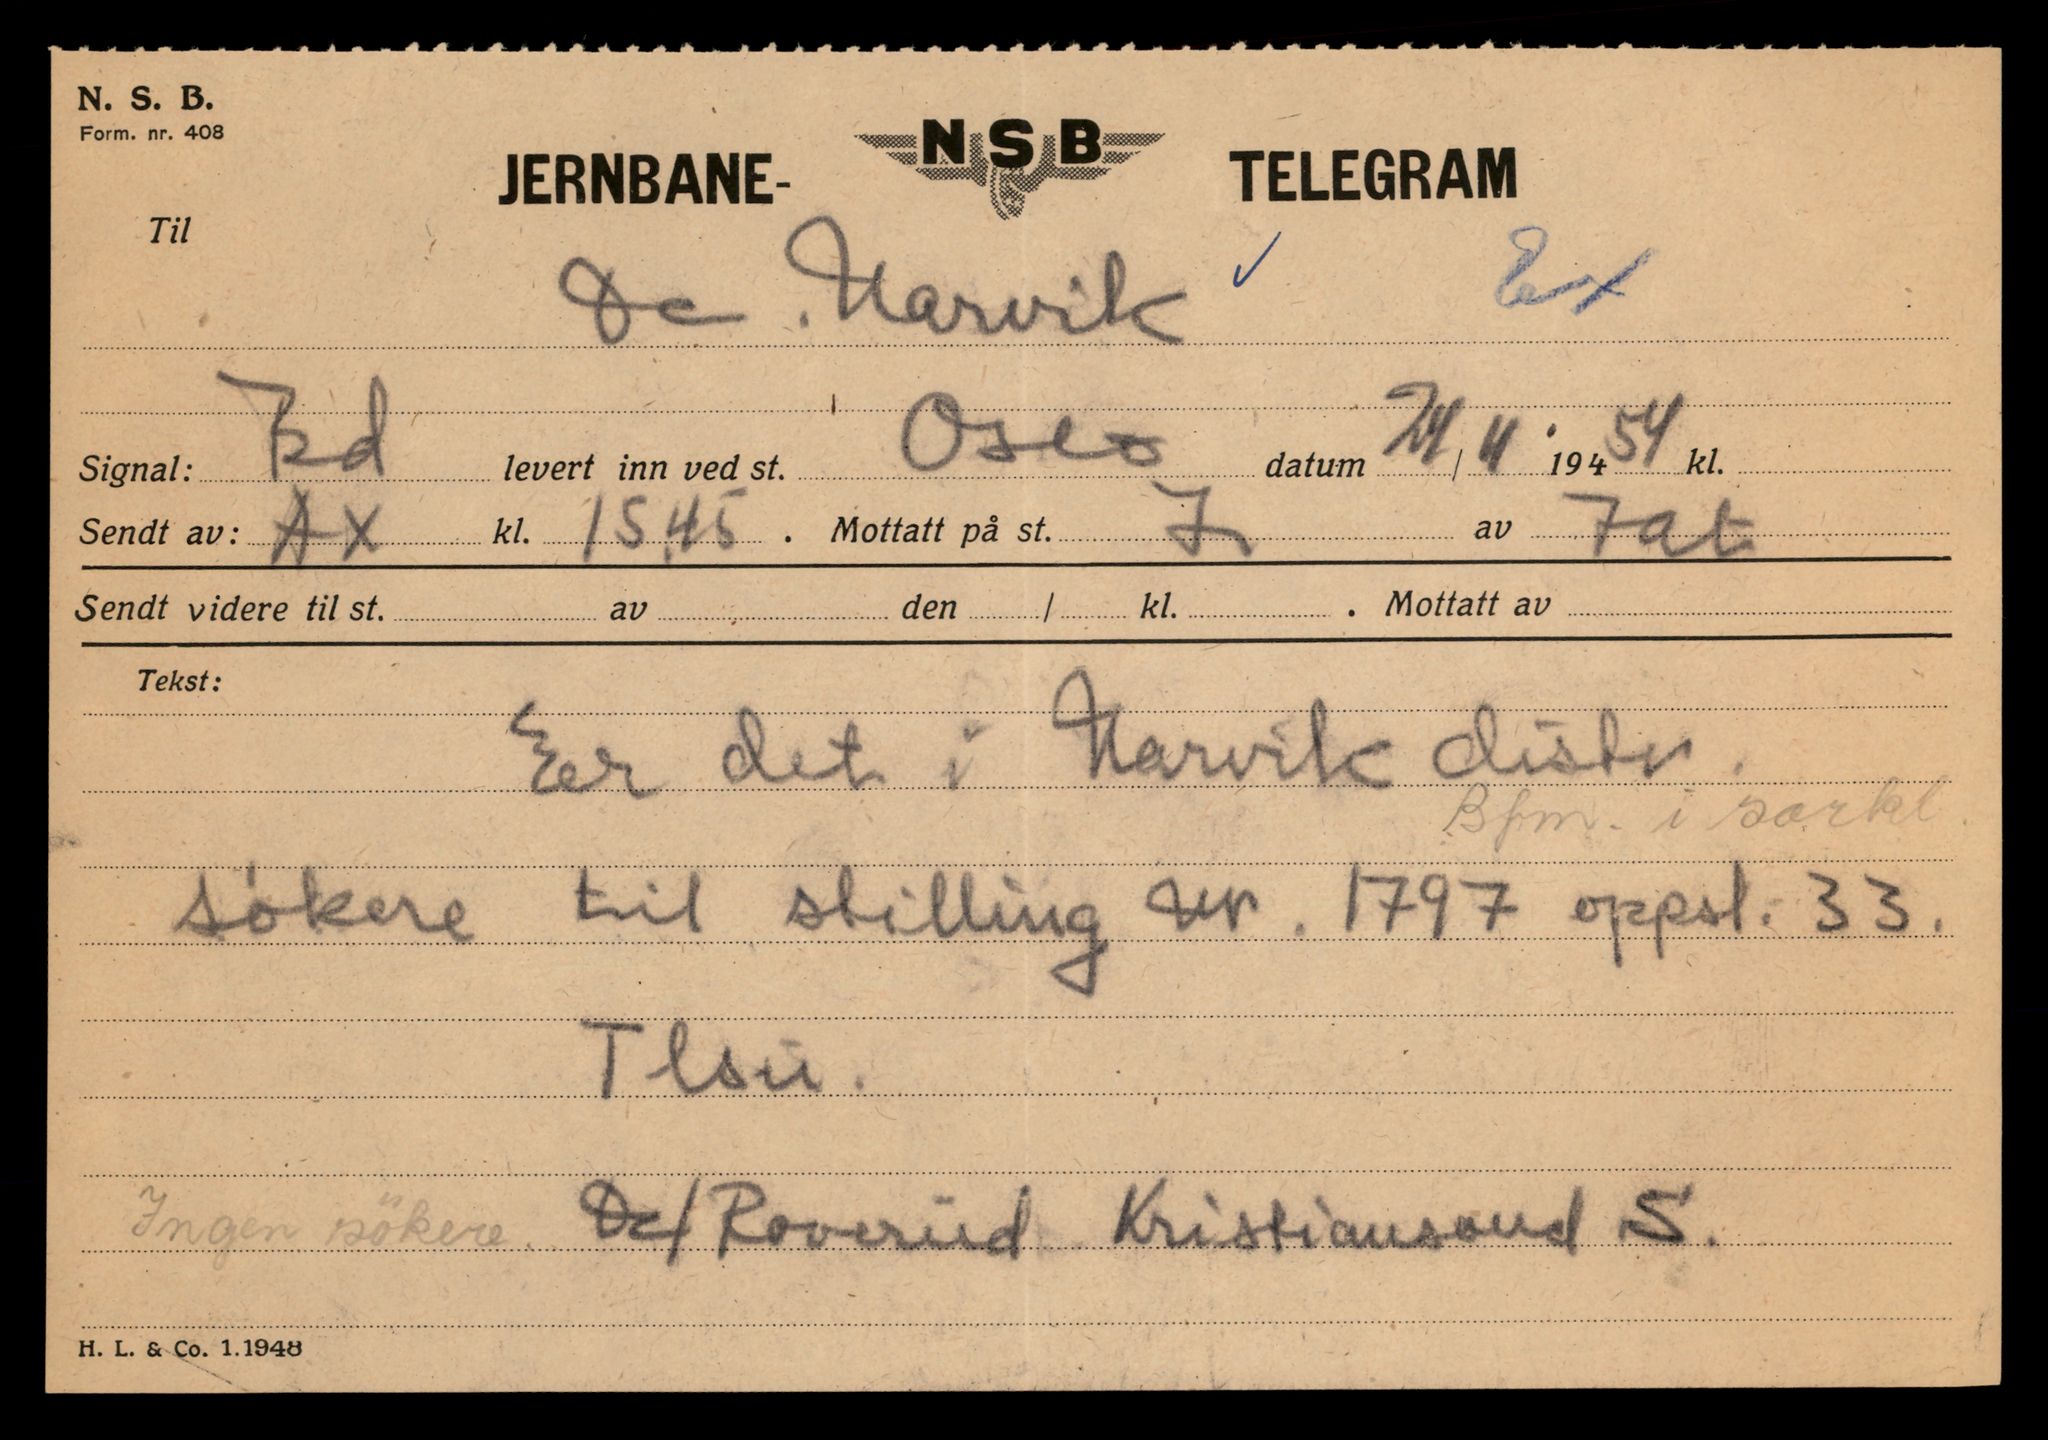 N. S. B.
Form. nr. 408
JERNBANE- NSB TELEGRAM
Til
Dc. Narvik ✓
Signal: levert inn ved st. Oslo datum 24/11 194 54 kl.
Sendt av: AX kl. 15,45. Mottatt på st. av
Sendt videre til st. av den / kl. . Mottatt av
Tekst:
Er det i Narvik distr.
Bfm. i særkl.
søkere til stilling nr. 1797 oppsl. 33.
Tlsu.
Ingen sökere. Dc/Roverud Kristiansand S.
H. L. & Co. 1.1948